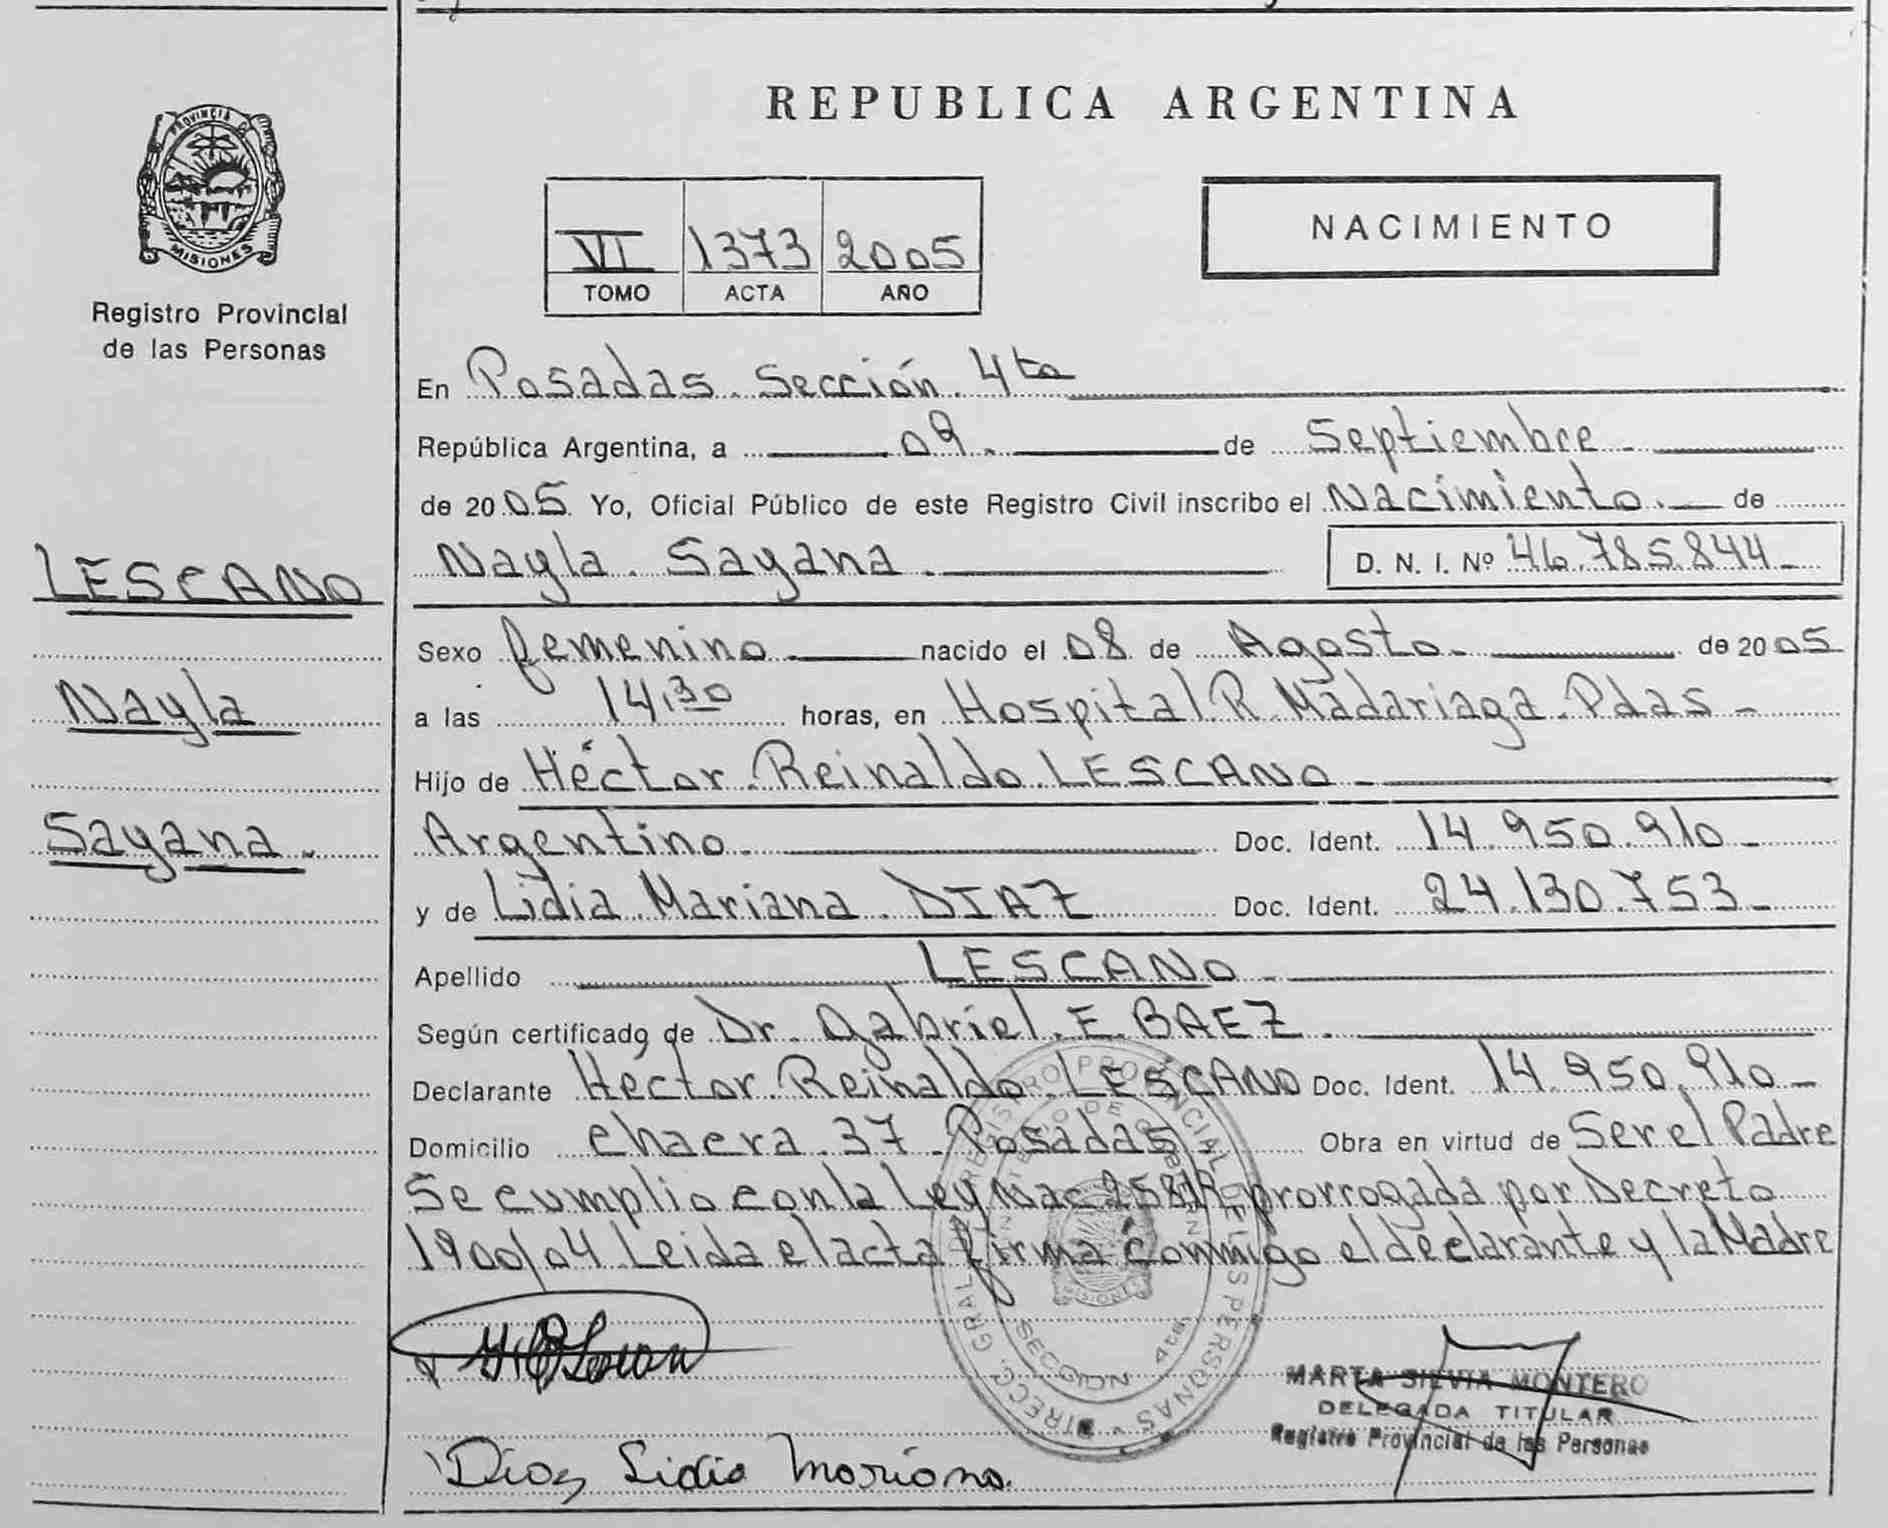 PROVINCIA DE
MISIONES
Registro Provincial
de las Personas
LESCANO
Nayla
Sayana.
REPUBLICA ARGENTINA
VI 1373 2005
TOMO ACTA AÑO
NACIMIENTO
En Posadas. Sección. 4ta
República Argentina, a 09. de Septiembre
de 2005 Yo, Oficial Público de este Registro Civil inscribo el Nacimiento. de
Nayla. Sayana. D. N. I. Nº 46.785.844
Sexo femenino nacido el 08 de Agosto. de 2005
a las 14,30 horas, en Hospital R. Madariaga. Pdas
Hijo de Héctor. Reinaldo. LESCANO
Argentino. Doc. Ident. 14.950.910
y de Lidia. Mariana. DIAZ Doc. Ident. 24.130.753
Apellido LESCANO
Según certificado de Dr. Gabriel. E. BAEZ.
Declarante Héctor. Reinaldo. LESCANO Doc. Ident. 14.950.910
Domicilio chacra. 37. Posadas Obra en virtud de Ser el Padre
Se cumplio con la Ley Nac 25819 prorrogada por Decreto
1900/04 Leida el acta firma conmigo el declarante y la Madre
DIRECC. GRAL. REGISTRO PROVINCIAL DE LAS PERSONAS
MINISTERIO DE GOBIERNO
MISIONES
SECCION 4ta
MARTA SILVIA MONTERO
DELEGADA TITULAR
Registro Provincial de las Personas
Diaz Lidia Mariana.